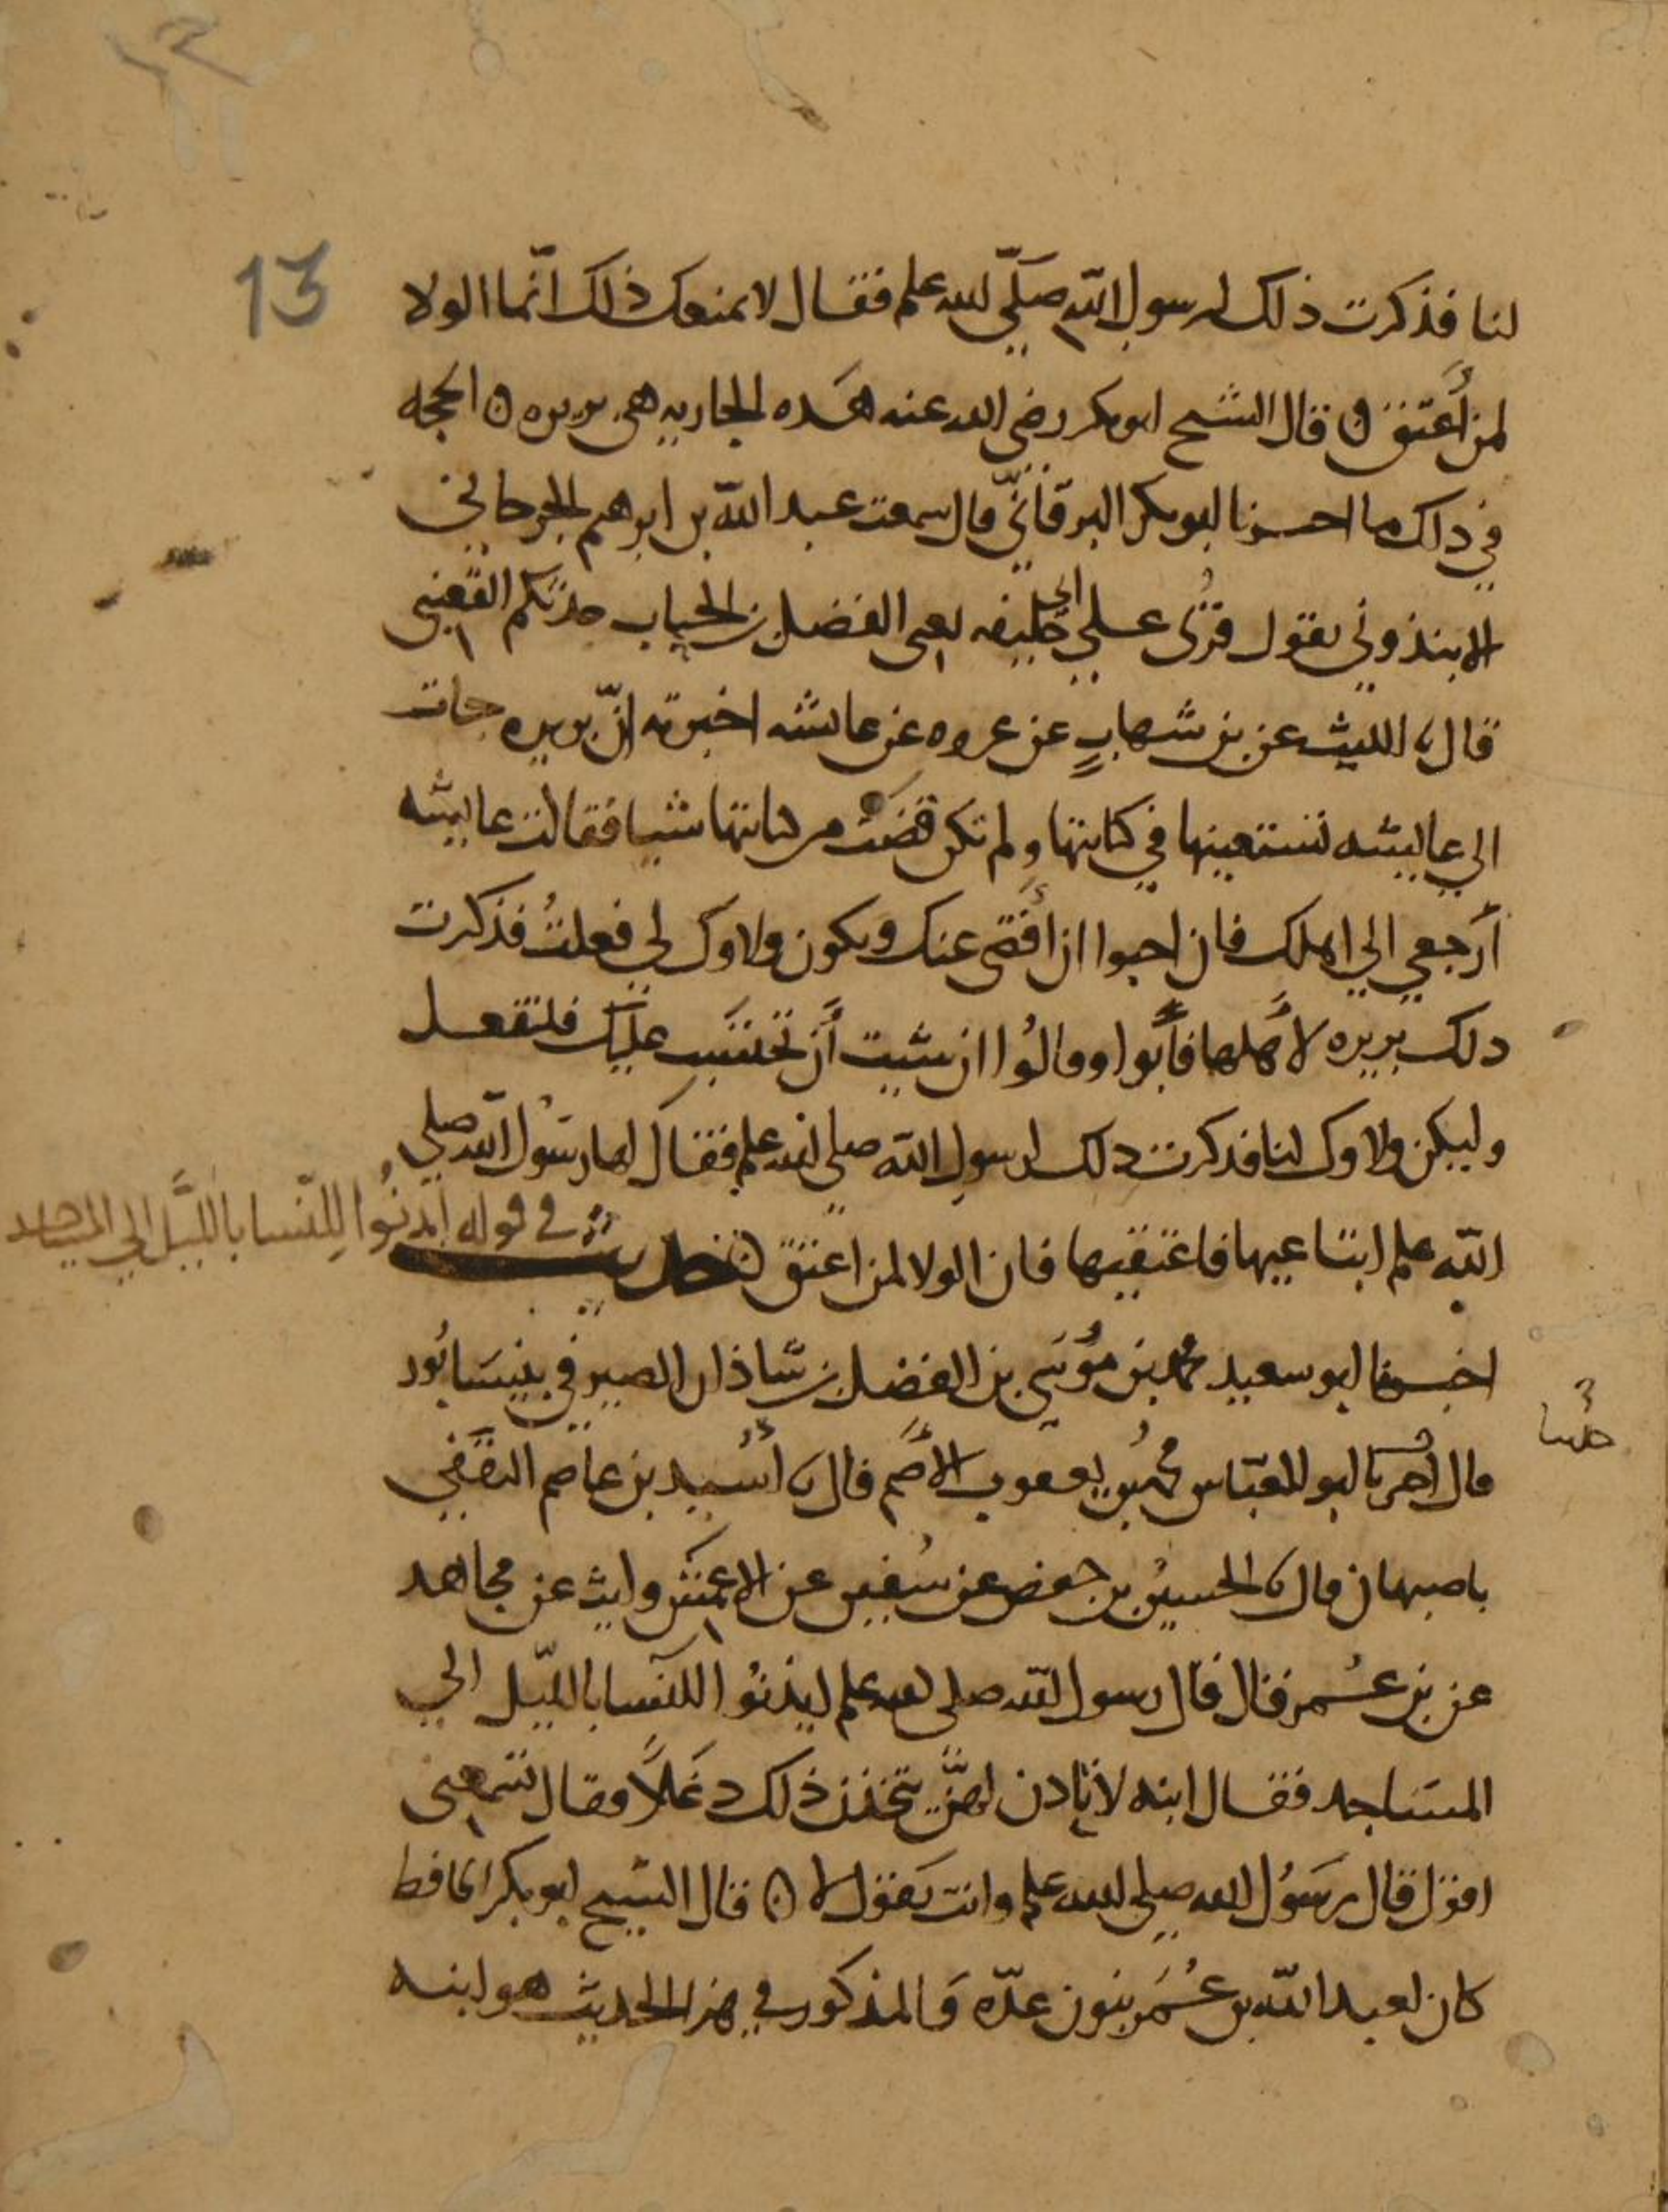 13
لنا فذكرت ذلك لرسول الله صلّي الله علم فقال لا يمنعك ذلك انّما الولا
لمن أَعتق ۞ قال الشيح ابو بكر رضى الله عنه هَده الجاريه هى بريره ۞ الحجه
في دلك ما اخبرنا ابو بكر البرقانيّ قال سمعت عبد الله بن ابرهيم الجرجاني
الابندوني يقول قرُئ علي ابي خليفه يعنى الفضل بن الحباب حدثكم القعنبي
قال نا الليث عن بن شهابٍ عن عروه عن عائشه اخبرته انّ بريره جات
الي عايشه تستعينها في كتابتها ولم تكن قضَت من كتابتها شيا فقالت عايشه
أرجعي الي اهلك فان احبوا ان أَقضى عنك ويكون ولاوك لي فعلتُ فذكرت
دلك بريره لأَهلها فأَبوا وقالُوا ان شيت أَن تحتسَب عليك فلتفعل
وليكن ولاوك لنا فذكرت دلك لرسول الله صلى الله علم فقال لها رسُول الله صلي
الله علم ابتاعيها فاعتقيها فان الولا لمن اعتق ۞ حديث
في قوله ائذنُوا للنّسا بالليَّل الي المساجد
اخبرنا ابو سعيد محمد بن مُوسَي بن الفضل بن شاذان الصيرفي بنيسَابُور
قال اخبرنا ابو العبّاس محمد بن يعقوب الأصَم قال نا أُسَيد بن عاصم الثقَفي
حدثنا
باصبهان قال نا الحسين بن حفص عن سُفين عن الاعمَش وليث عن مجاهد
عن بن عُمر قال قال رسول الله صلى الله علم ايذنُوا للنّسا بالليّل الي
المسَاجد فقال ابنه لا نادن لهنّ يتخذن ذلك دغَلاً وقال تسمعنى
اقول قال رسُول الله صلي الله علم وانت تَقول لا ۞ قال الشيح ابو بكر الحافظ
كان لعبد الله بن عُمَر بنون عدّه وَالمذكور في هذا الحديث هو ابنه